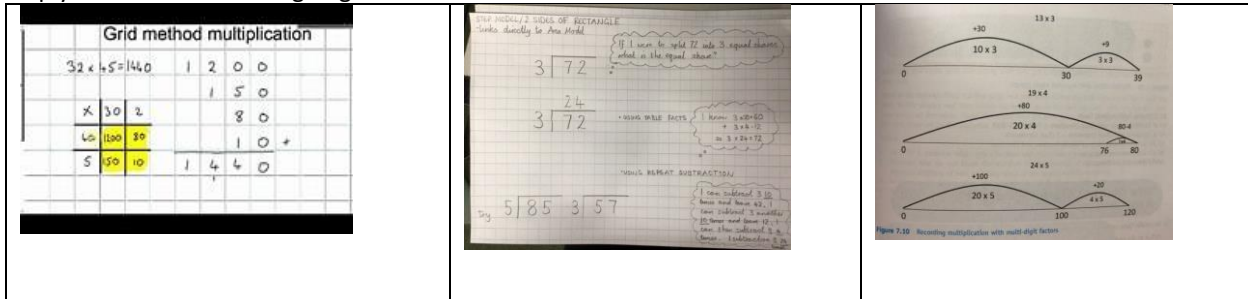 Grid method multiplication
32 x 45 = 1440
1 2 0 0
1 5 0
8 0
1 0 +
1 4 4 0
1
X 30 2
40 1200 80
5 150 10
STEP MODEL/2 SIDES OF RECTANGLE
-Links directly to Area Model
If I want to split 72 into 3 equal shares
what is the equal share?
3 72
24
3 72
-USING TABLE FACTS
I know 3 x 20=60
+ 3 x 4=12
so 3 x 24=72
-USING REPEAT SUBTRACTION
I can subtract 3 10
times and leave 42, I
can subtract 3 another
10 times and leave 12, I
can then subtract 3 4
times. I subtracted 3 24
Try 5 85 3 57
13 x 3
+30
+9
10 x 3
3 x 3
0
30
39
19 x 4
+80
20 x 4
80-4
0
76
80
24 x 5
+100
+20
20 x 5
4 x 5
0
100
120
Figure 7.10 Recording multiplication with multi-digit factors